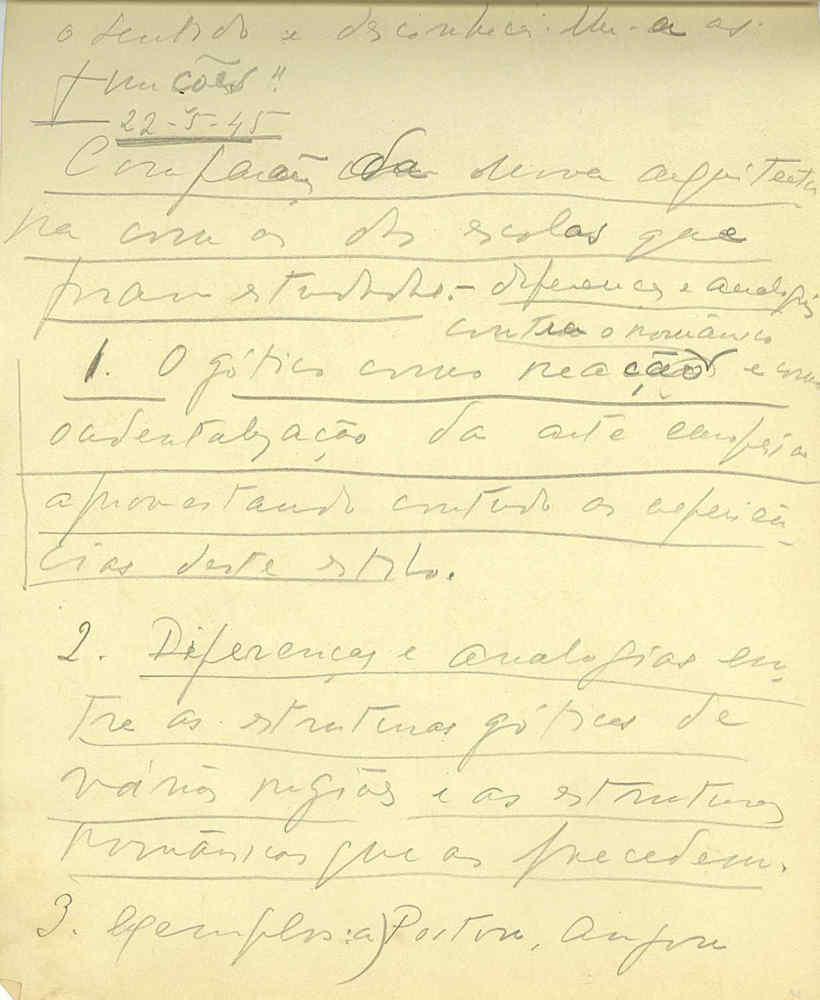 o sentido e desconheci-lhe as
funções"
22-5-45
Comparação da nova arquitectu
ra com as das escolas que
foram estudadas. - diferenças e analogias
contra o românico
1. O gótico como reação e como
ocidentalização da arte europeia
aproveitando contudo as experiên-
cias deste estilo.
2. Diferenças e analogias en-
tre as estruturas góticas de
várias regiões e as estruturas
românicas que as precedem.
3. Exemplos: a) Poitou, Anjou